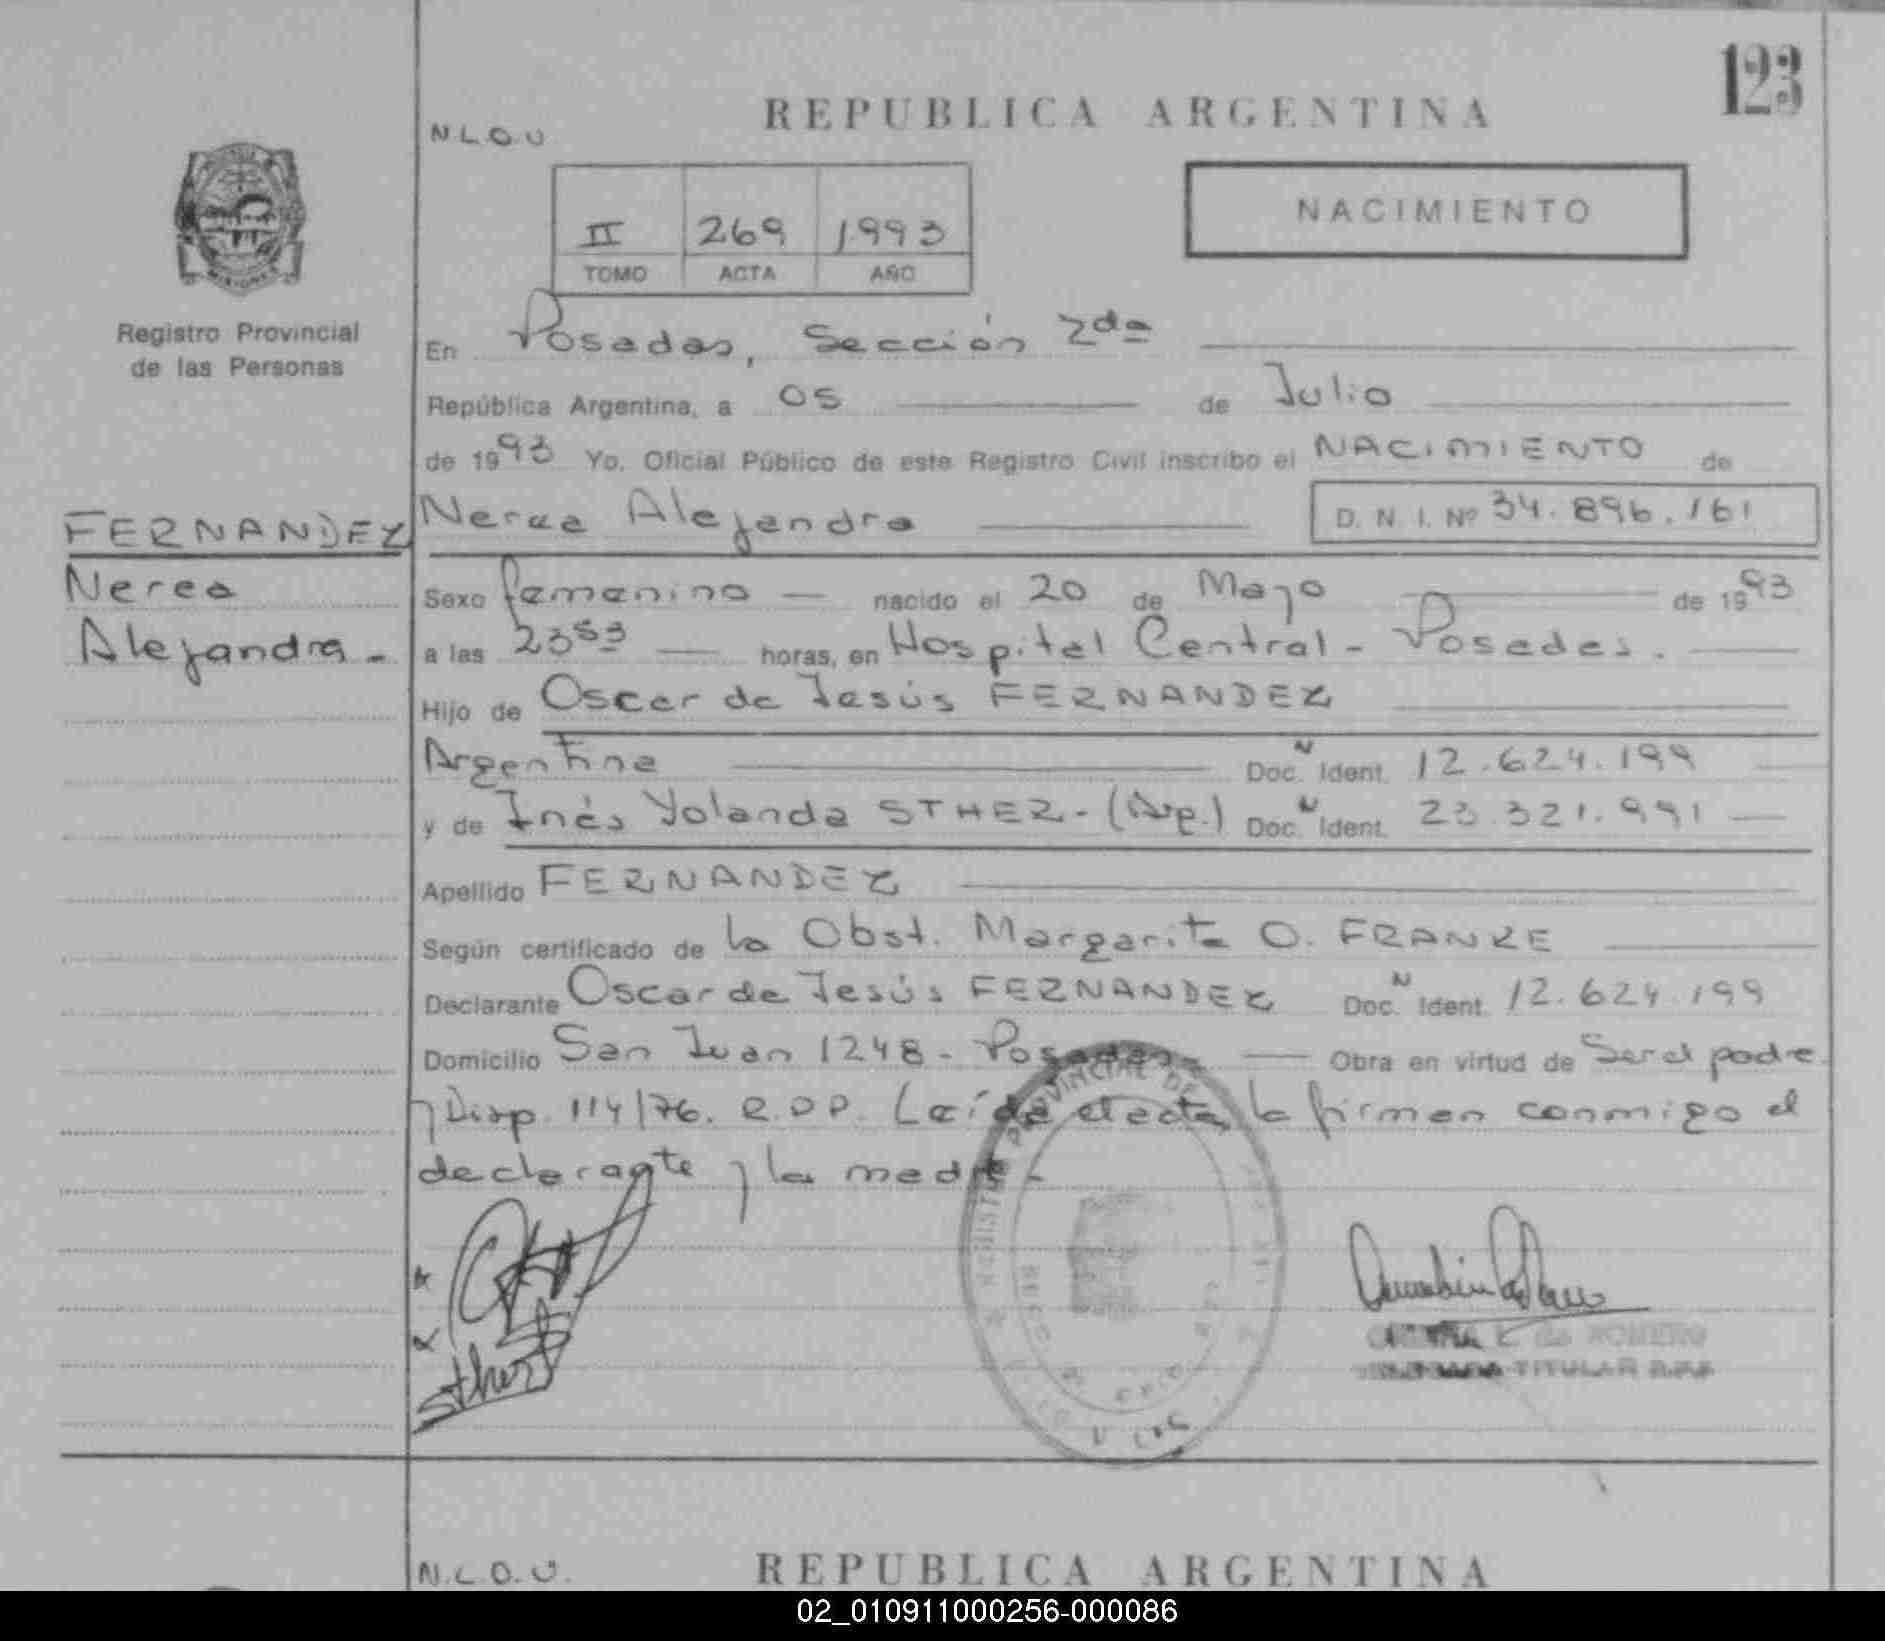 123
REPUBLICA ARGENTINA
N.L.O.U
NACIMIENTO
II 269 1993
TOMO ACTA AÑO
Registro Provincial
de las Personas
En Posadas, Sección 2da
República Argentina, a 05 de Julio
de 1993 Yo, Oficial Público de este Registro Civil inscribo el NACIMIENTO de
FERNANDEZ
Nerea Alejandra D. N. I. Nº 34.896.161
Nerea
Alejandra -
Sexo femenino — nacido el 20 de Mayo de 1993
a las 23 53 — horas, en Hospital Central - Posadas.
Hijo de Oscar de Jesús FERNANDEZ
Argentina Doc. N Ident. 12.624.199
y de Inés Yolanda STHER - (Arg.) Doc. N Ident. 23.321.991
Apellido FERNANDEZ
Según certificado de la Obst. Margarita O. FRANKE
Declarante Oscar de Jesús FERNANDEZ Doc. N Ident. 12.624.199
Domicilio San Juan 1248 - Posadas - Obra en virtud de Ser el padre
y Disp. 114/76. R.D.P. Leída el acta, la firman conmigo el
declarante y la madre -
PROVINCIAL DE
Sther
de ROMERO
TITULAR
N.L.O.U.
REPUBLICA ARGENTINA
02_010911000256-000086